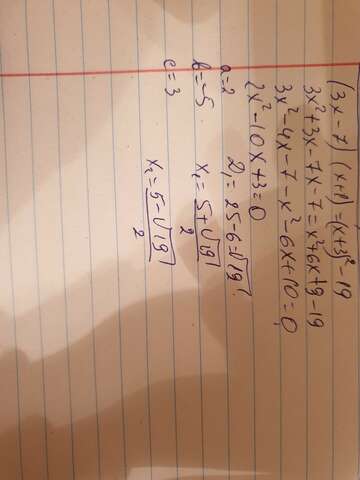 (3x-7)(x+1)=(x+3)²-19
3x²+3x-7x-7=x²+6x+9-19
3x²-4x-7-x²-6x+10=0
2x²-10x+3=0
a=2 D₁=25-6=√19
b=-5 x₁=5+√19/2
c=3 x₂=5-√19/2